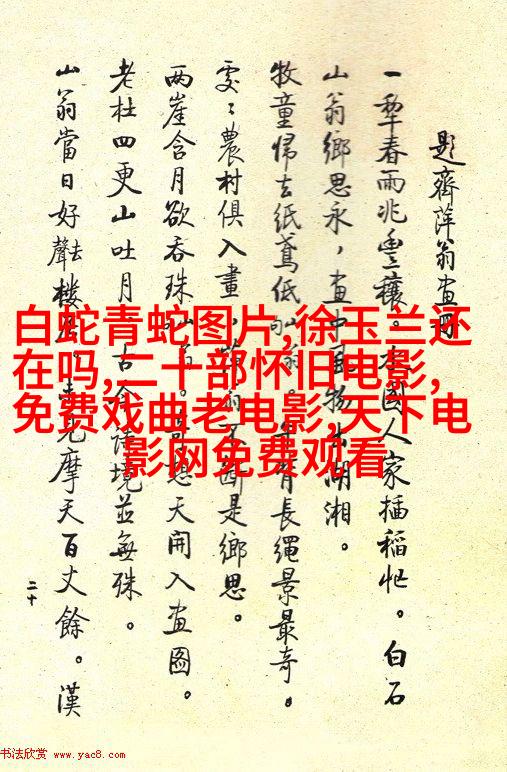 題齊萍翁畫
一犁春雨兆豐穰。國人家插稻忙。白石
山翁鄉思永，畫中物湖湘。
牧童歸去紙鳶低長繩景最奇。
處〻農村俱入畫，是鄉思。
兩崖含月欲吞珠想天開入畫圖。
老杜四更山吐月古今語境並無殊。
山翁當日好去聲樓摩天百丈餘。漢
二十
白蛇青蛇图片,徐玉兰还
在吗,二十部怀旧电影,
免费戏曲老电影,天下电
影网免费观看
书法欣赏 www.yac8.com